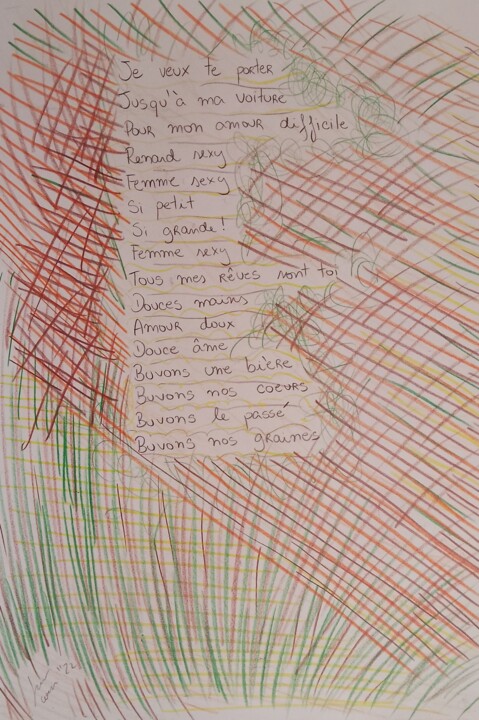 Je veux te porter
Jusqu'à ma voiture
Pour mon amour difficile
Renard sexy
Femme sexy
Si petit
Si grande!
Femme sexy
Tous mes rêves sont toi
Douces mains
Amour doux
Douce âme
Buvons une bière
Buvons nos coeurs
Buvons le passé
Buvons nos graines
"22